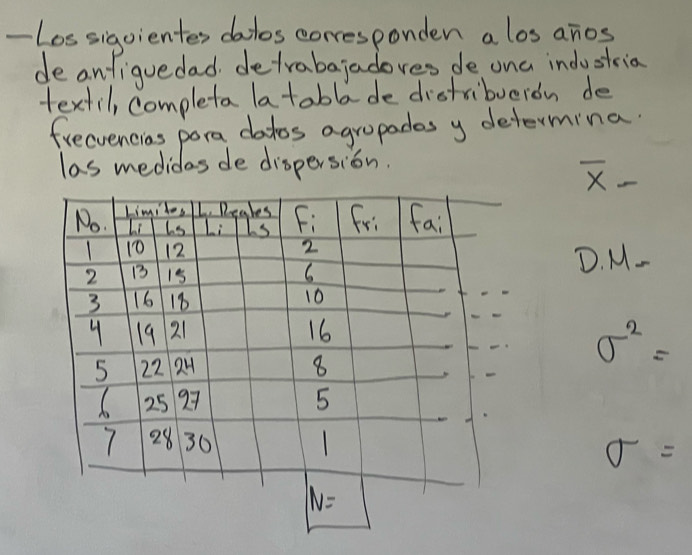 - Los siguientes datos corresponden a los años
de antiguedad. de trabajadores de una industria
textil, completa la tabla de distribución de
frecuencias para datos agrupados y determina.
las medidas de dispersión.
X̅ -
No. Limites L. Reales Fi Fri Fai
Li Ls Li Ls
1 10 12 2
2 13 15 6
D.M-
3 16 18 10
4 19 21 16
σ² =
5 22 24 8
6 25 27 5
7 28 30 1
σ =
N=